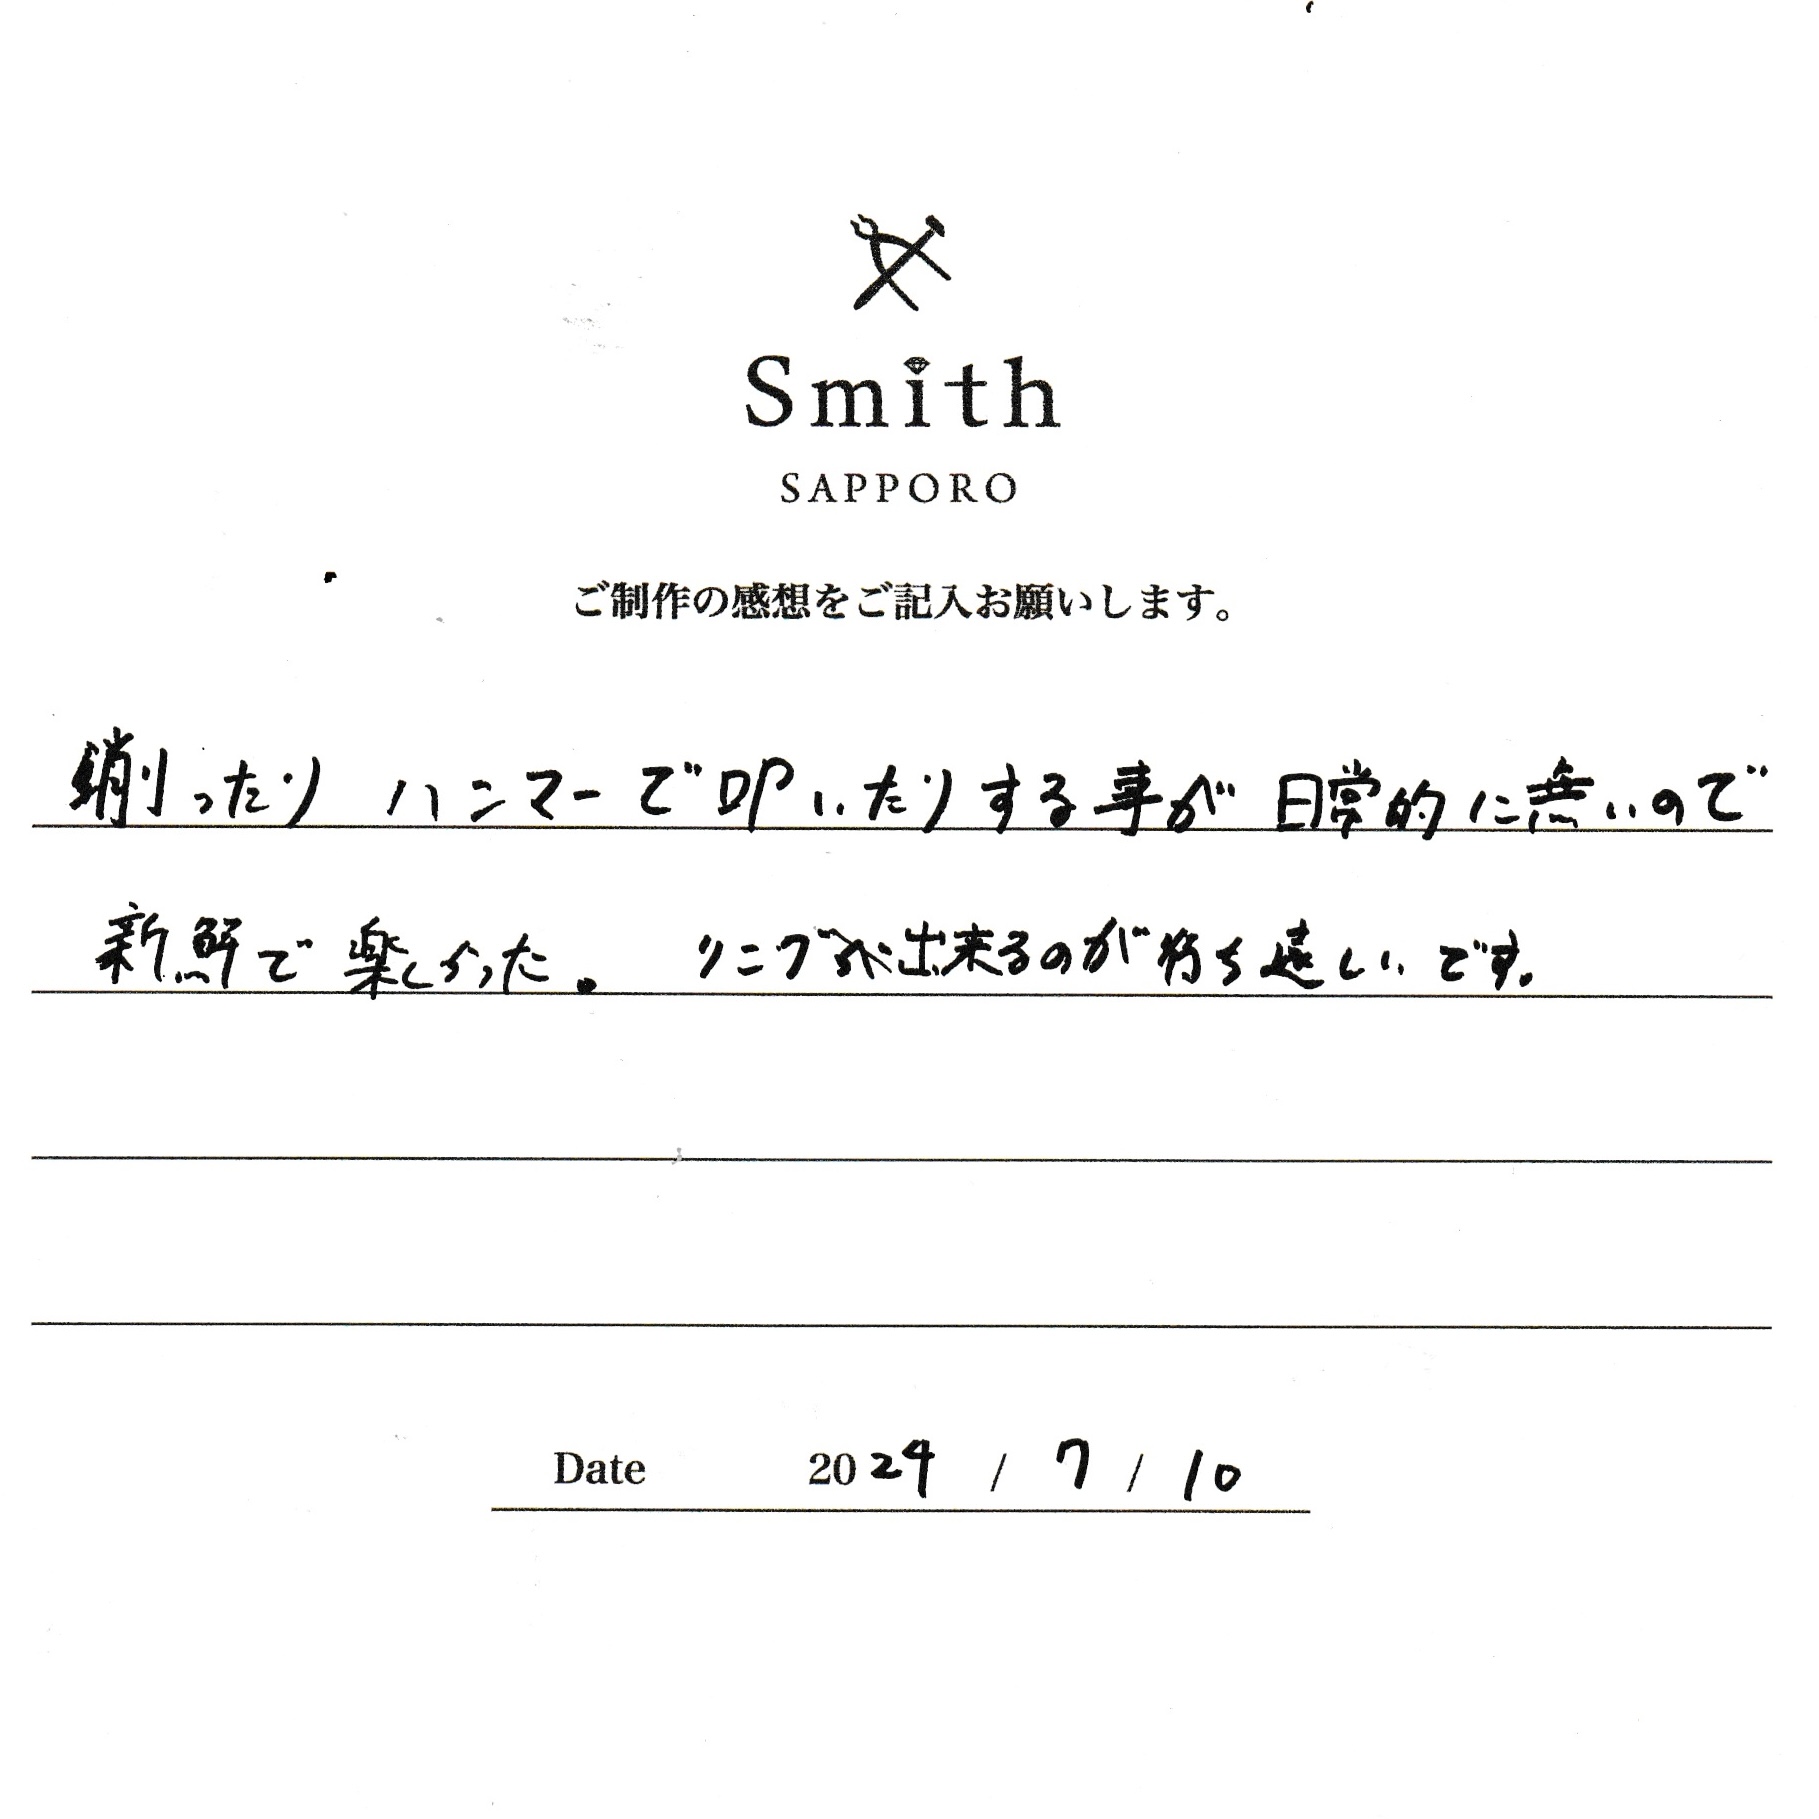 Smith
SAPPORO
ご制作の感想をご記入お願いします。
削ったり ハンマーで叩いたりする事が 日常的に無いので
新鮮で楽しかった。 リングが出来るのが待ち遠しいです。
Date 2024 / 7 / 10